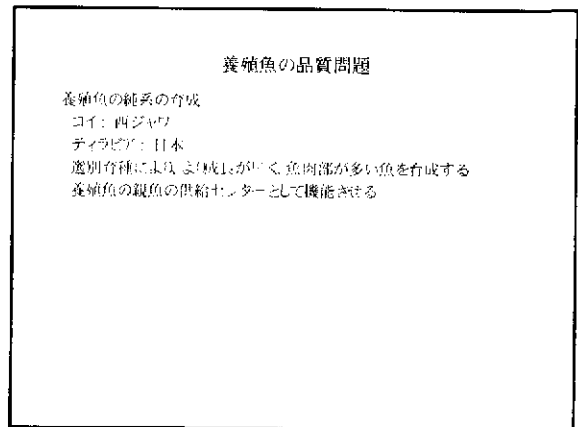 養殖魚の品質問題
養殖魚の純系の育成
コイ：西ジャワ
ティラピア：日本
選別育種により、より成長が早く、魚肉部が多い魚を育成する
養殖魚の親魚の供給センターとして機能させる